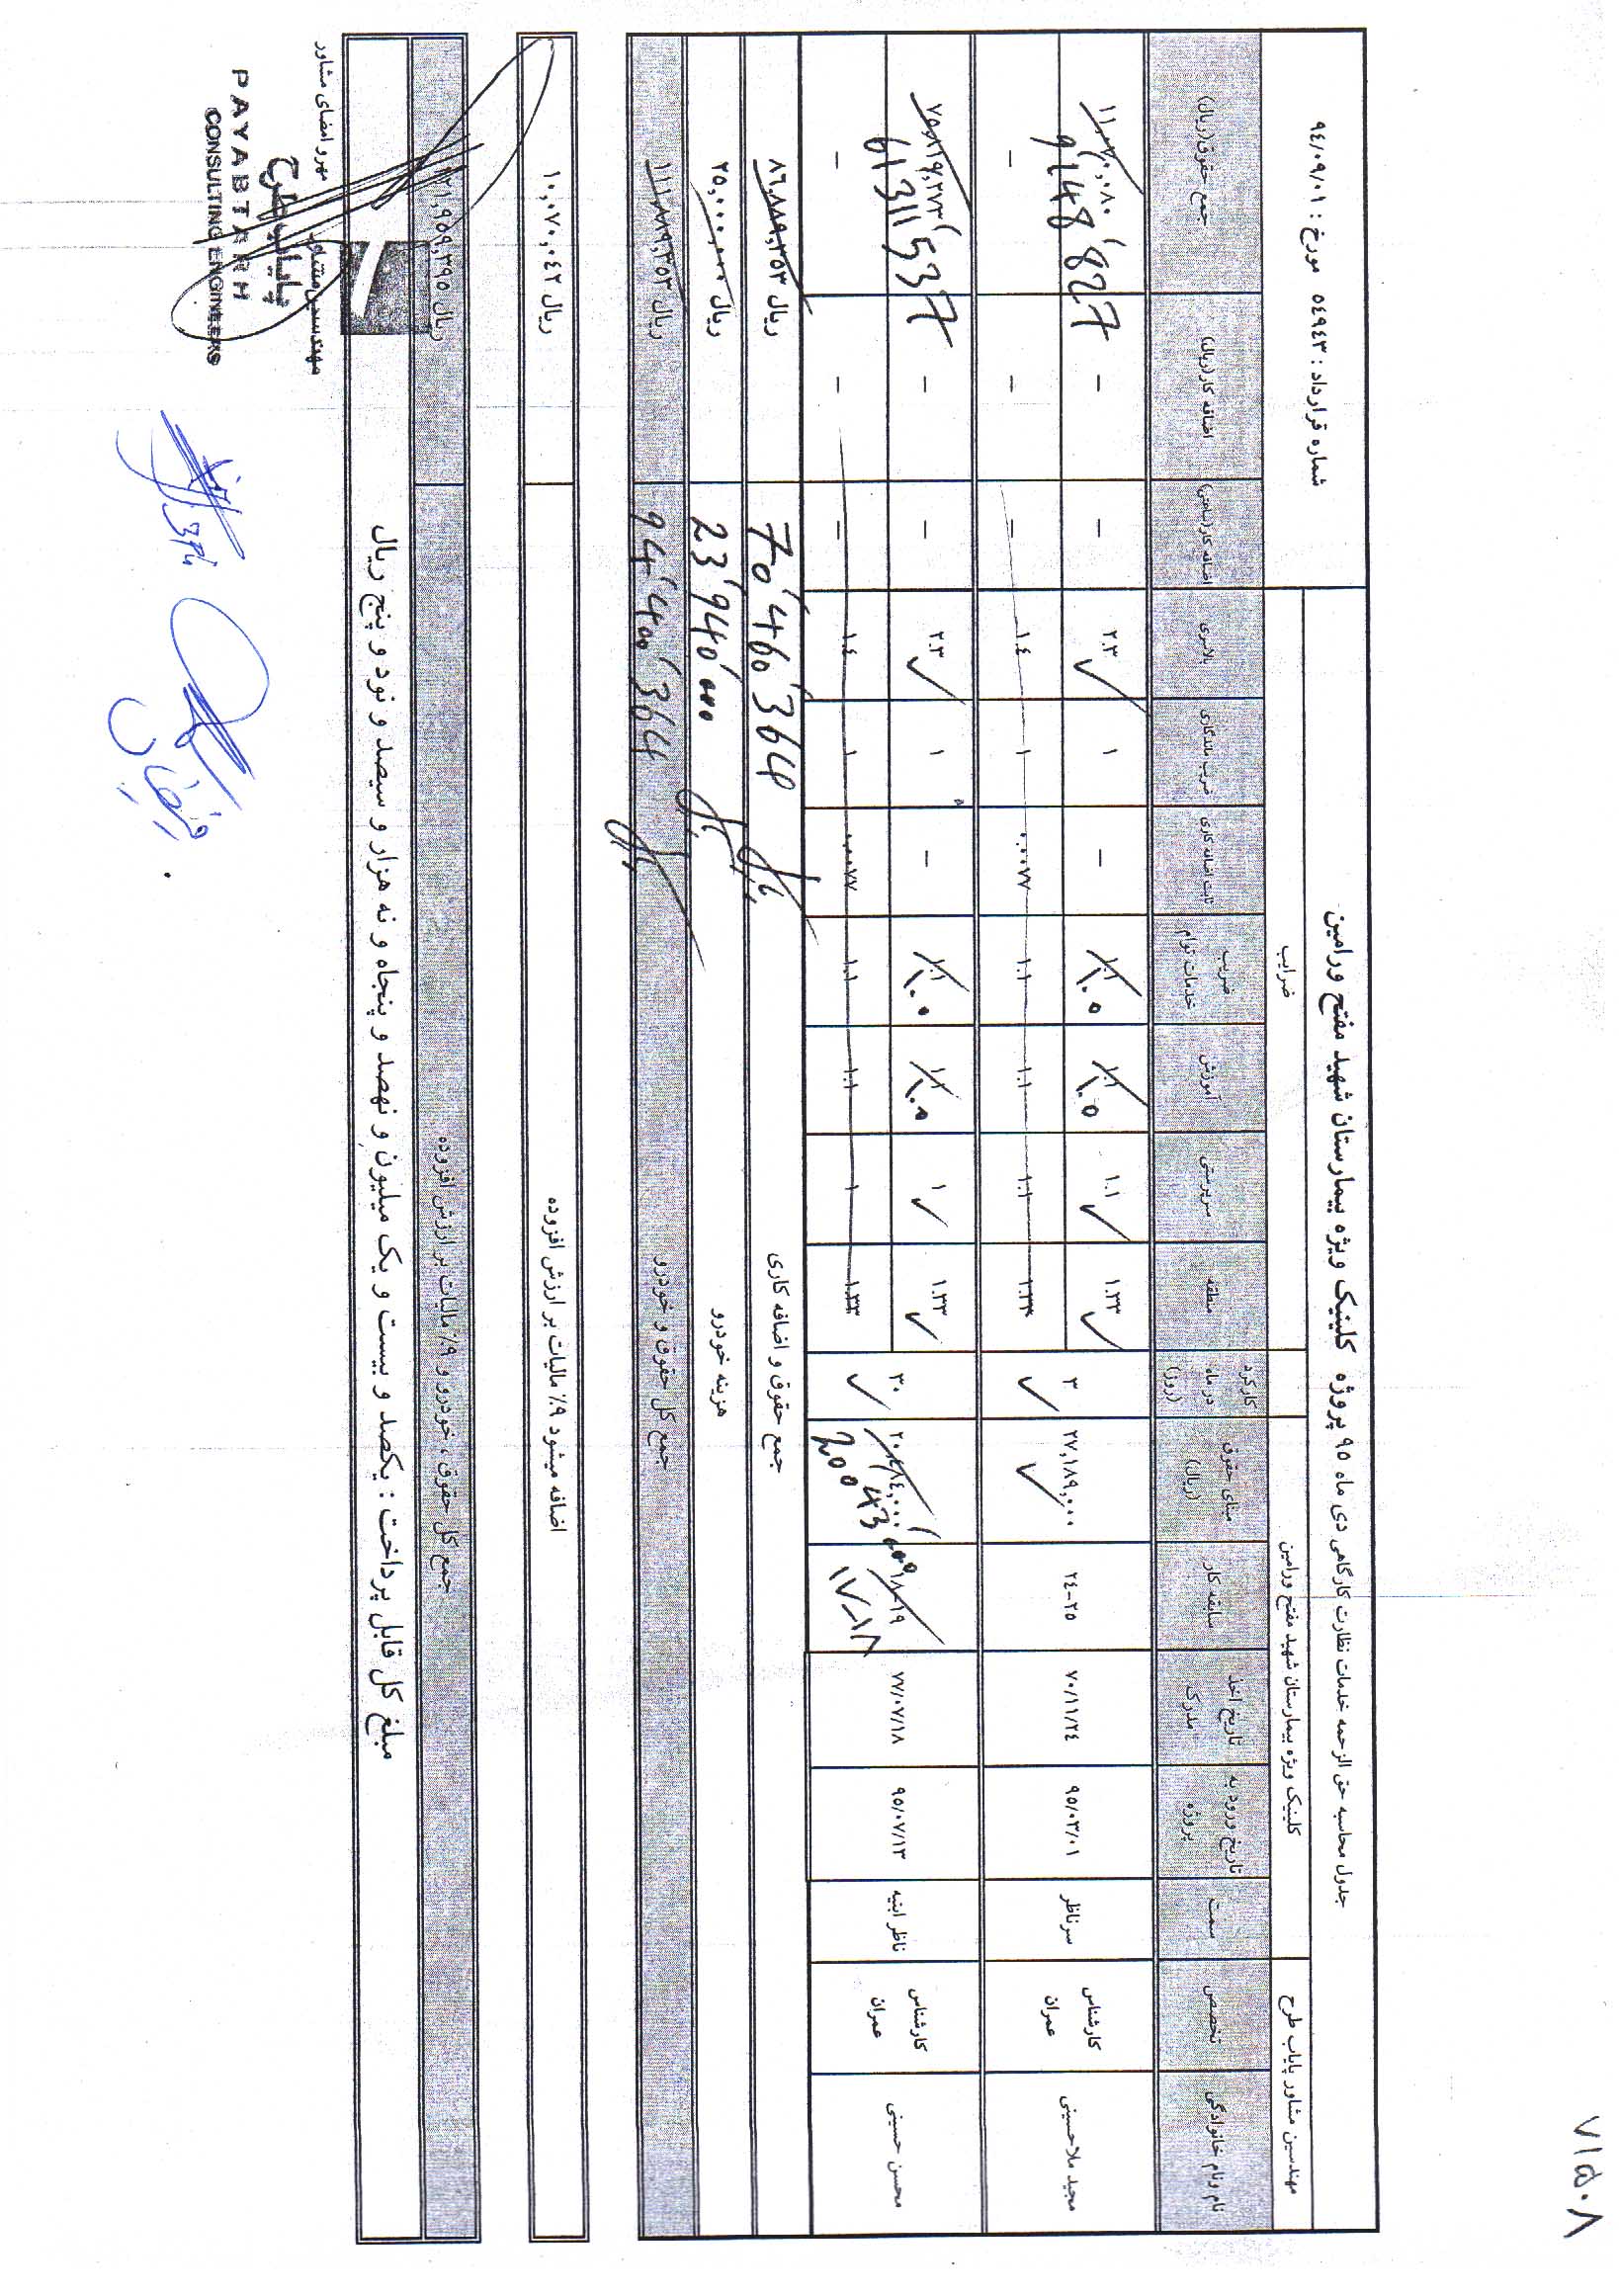 ۷۱۵۰۸
جدول محاسبه حق الزحمه خدمات نظارت کارگاهی دی ماه ۹۵ پروژه کلینیک ویژه بیمارستان شهید مفتح ورامین
شماره قرارداد : ۵٤۹٤۳ مورخ : ۹٤/۰۹/۰۱
مهندسین مشاور پایاب طرح
کلینیک ویژه بیمارستان شهید مفتح ورامین
ضرایب
نام ونام خانوادگی
تخصص
سمت
تاریخ ورود به پروژه
تاریخ اخذ مدرک
سابقه کار
مبنای حقوق (ریال)
کارکرد در ماه (روز)
منطقه
سرپرستی
آموزش
ضریب خدمات توام
ثابت اضافه کاری
ضریب ماندگاری
بالاسری
اضافه کار (ساعتی)
اضافه کار (ریال)
جمع حقوق (ریال)
مجید ملاحسینی
کارشناس عمران
سرناظر
۹۵/۰۳/۰۱
۷۰/۱۱/۲٤
۲٤-۲۵
۲۷,۱۸۹,۰۰۰
۳
۱.۳۳ ۱.۱ ۱.۱ ۱.۱ – ۱ ۲.۳ – –
۱.۰۵ ۱.۰۵
9148827
۱.۳۳ ۱.۱ ۱.۱ ۱.۱ ۰.۰۰۷۷ ۱ ۱.٤ – – –
محسن حسینی
کارشناس عمران
ناظر ابنیه
۹۵/۰۷/۱۳
۷۷/۰۷/۱۸
۱۸-۱۹
۱۷-۱۸
۳۰
۱.۳۳ ۱ ۱.۱ ۱.۱ – ۱ ۲.۳ – – ۷۵,۸۱۹,۲۷۳
۱.۰۵ ۱.۰۵
61311537
۱.۳۳ ۱ ۱.۱ ۱.۱ ۰.۰۰۷۷ ۱ ۱.٤ – – –
جمع حقوق و اضافه کاری
70'460'364
ریال ۸۶,۸۸۹,۳۵۳
هزینه خودرو
23'940'000
ریال ۲۵,۰۰۰,۰۰۰
جمع کل حقوق و خودرو
94'400'364
ریال ۱۱۱,۸۸۹,۳۵۳
اضافه میشود ۹٪ مالیات بر ارزش افزوده
ریال ۱۰,۰۷۰,۰٤۲
جمع کل حقوق ، خودرو و ۹٪ مالیات بر ارزش افزوده
ریال ۱۲۱,۹۵۹,۳۹۵
مبلغ کل قابل پرداخت : یکصد و بیست و یک میلیون و نهصد و پنجاه و نه هزار و سیصد و نود و پنج ریال
مهر و امضای مشاور
مهندسین مشاور
پایاب طرح
PAYAB TARH
CONSULTING ENGINEERS